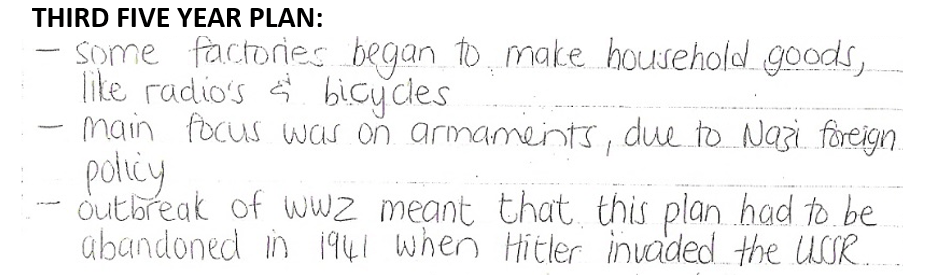 THIRD FIVE YEAR PLAN:
– some factories began to make household goods,
like radio's & bicycles
– main focus was on armaments, due to Nazi foreign
policy
– outbreak of WW2 meant that this plan had to be
abandoned in 1941 when Hitler invaded the USSR.